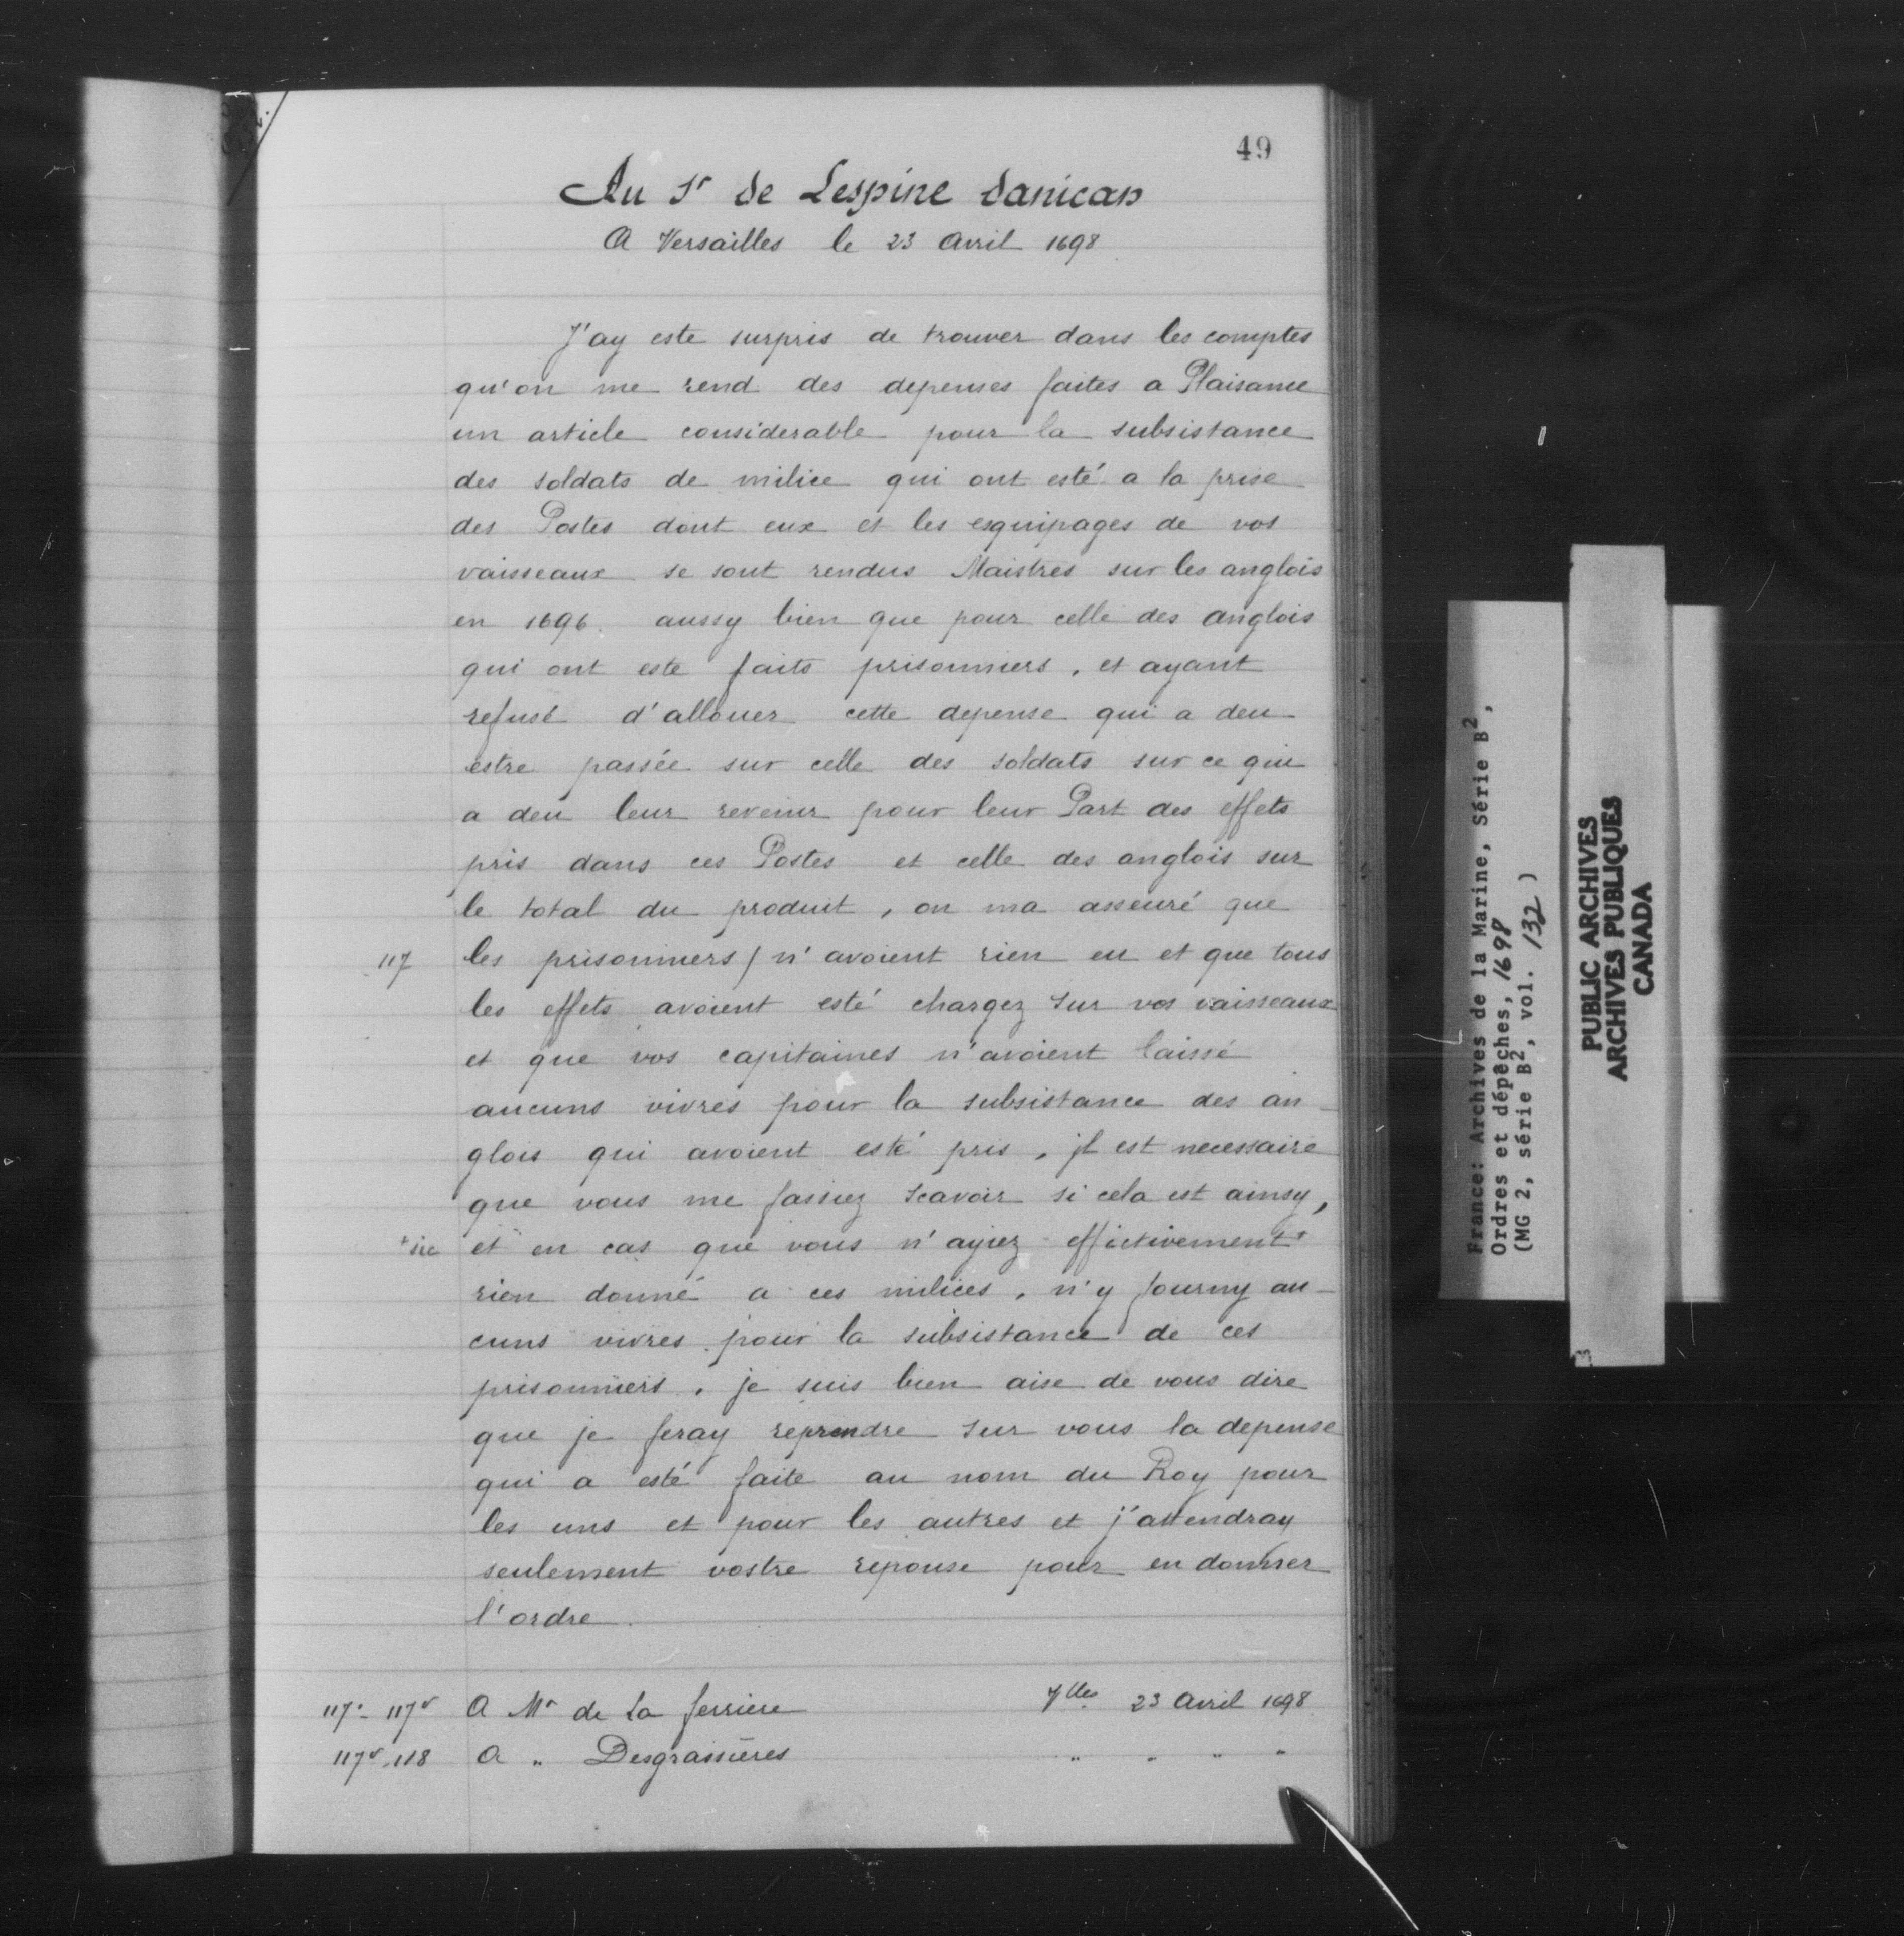 49
Au Sr de Lespine danican
A Versailles le 23 Avril 1698
J'ay este surpris de trouver dans les comptes
qu'on me rend des depenses faites a Plaisance
un article considerable pour la subsistance
des soldats de milice qui ont esté a la prise
des Postes dont eux et les esquipages de vos
vaisseaux se sont rendus Maistres sur les anglois
en 1696. aussy bien que pour celle des anglois
qui ont este faits prisonniers, et ayant
refusé d'allouer cette depense qui a deu
estre passée sur celle des soldats sur ce qui
a deu leur revenir pour leur Part des effets
pris dans ces Postes et celle des anglois sur
le total du produit, on ma asseuré que
117 les prisonniers / n'avoient rien eu et que tous
les effets avoient esté chargez sur vos vaisseaux
et que vos capitaines n'avoient laissé
aucuns vivres pour la subsistance des an-
glois qui avoient esté pris, jl est necessaire
que vous me fassiez scavoir si cela est ainsy,
+sic et en cas que vous n'ayiez effictivement+
rien donné a ces milices, n'y fourny au-
cuns vivres pour la subsistance de ces
prisonniers, je suis bien aise de vous dire
que je feray reprendre sur vous la depense
qui a esté faite au nom du Roy pour
les uns et pour les autres et j'attendray
seulement vostre reponse pour en donner
l'ordre.
117-117v A Mr de La ferriere Vlles 23 Avril 1698
117v-118 A " Desgrassieres " " " "
France: Archives de la Marine, Série B2,
Ordres et dépêches, 1698
(MG 2, série B2, vol. 132)
PUBLIC ARCHIVES
ARCHIVES PUBLIQUES
CANADA